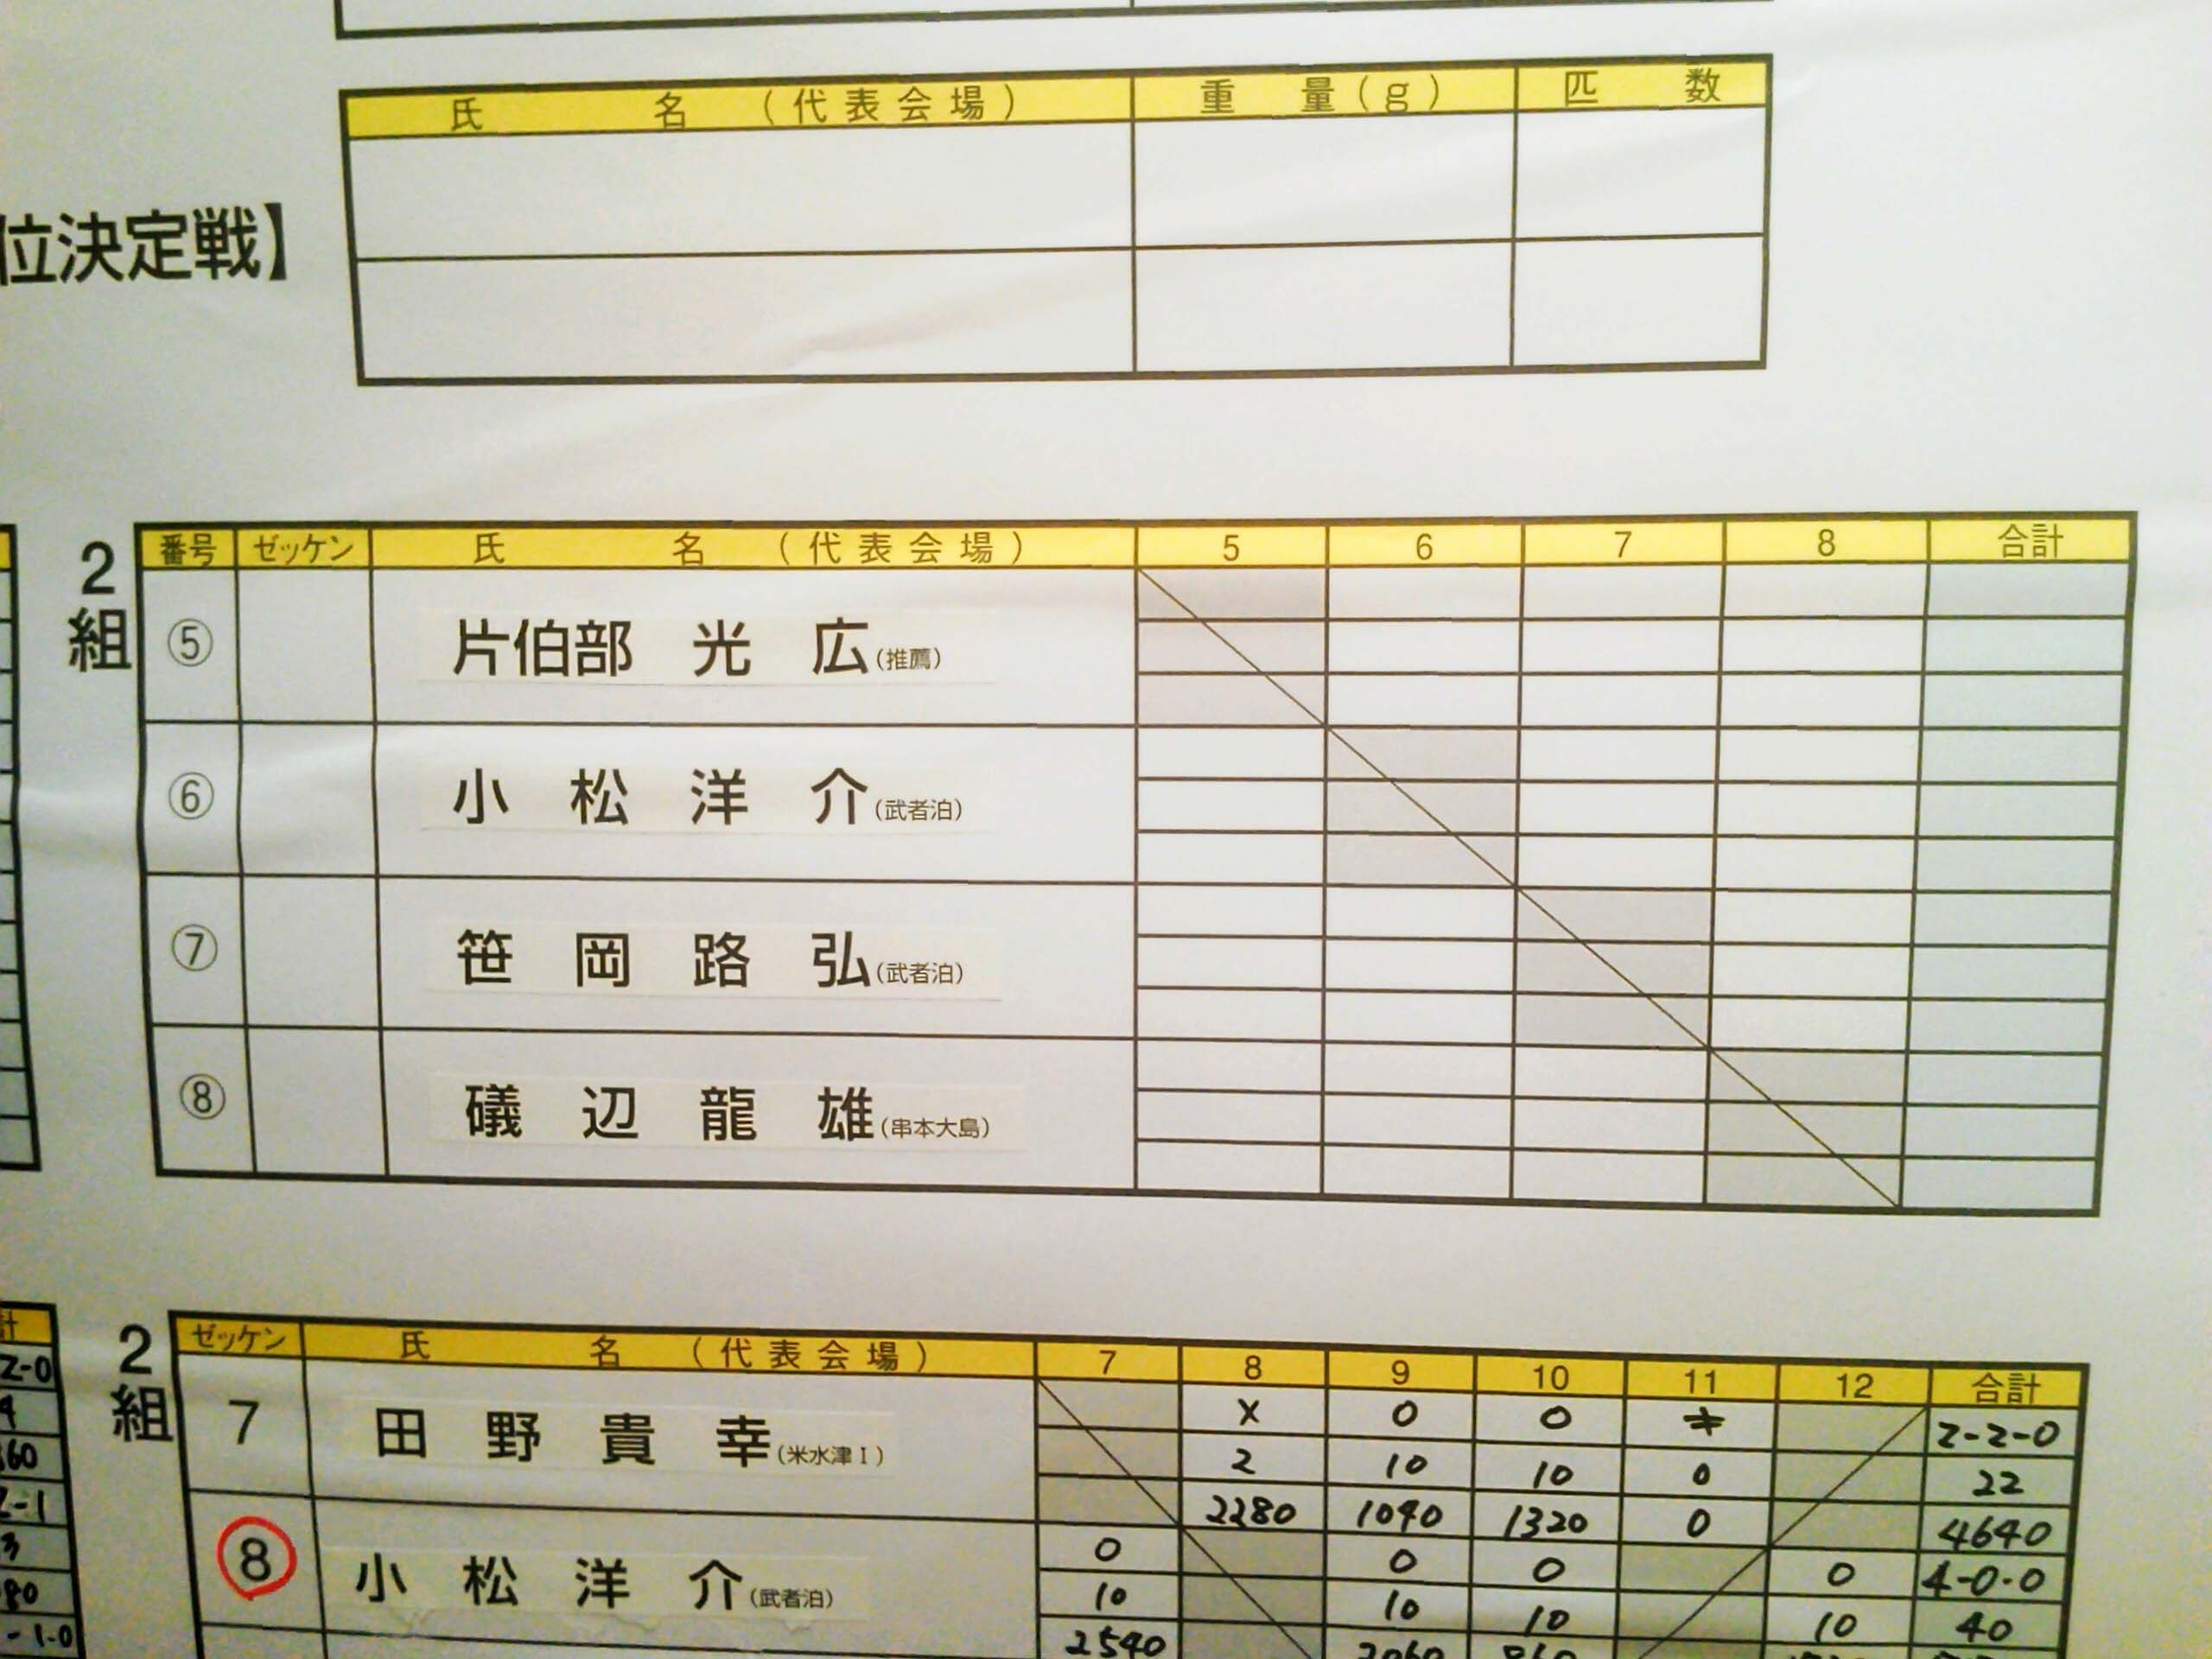 氏 名 （代表会場） 重 量(g) 匹 数
位決定戦】
2組
番号 ゼッケン 氏 名 （代表会場） 5 6 7 8 合計
⑤ 片伯部 光 広(推薦)
⑥ 小 松 洋 介(武者泊)
⑦ 笹 岡 路 弘(武者泊)
⑧ 礒 辺 龍 雄(串本大島)
計
2-0
2組
ゼッケン 氏 名 （代表会場） 7 8 9 10 11 12 合計
7 田 野 貴 幸(米水津Ⅰ)
× 0 0 2-2-0
2 10 10 0 22
2280 1040 1320 0 4640
8 小 松 洋 介(武者泊)
0 0 0 0 4-0-0
10 10 10 10 40
2540